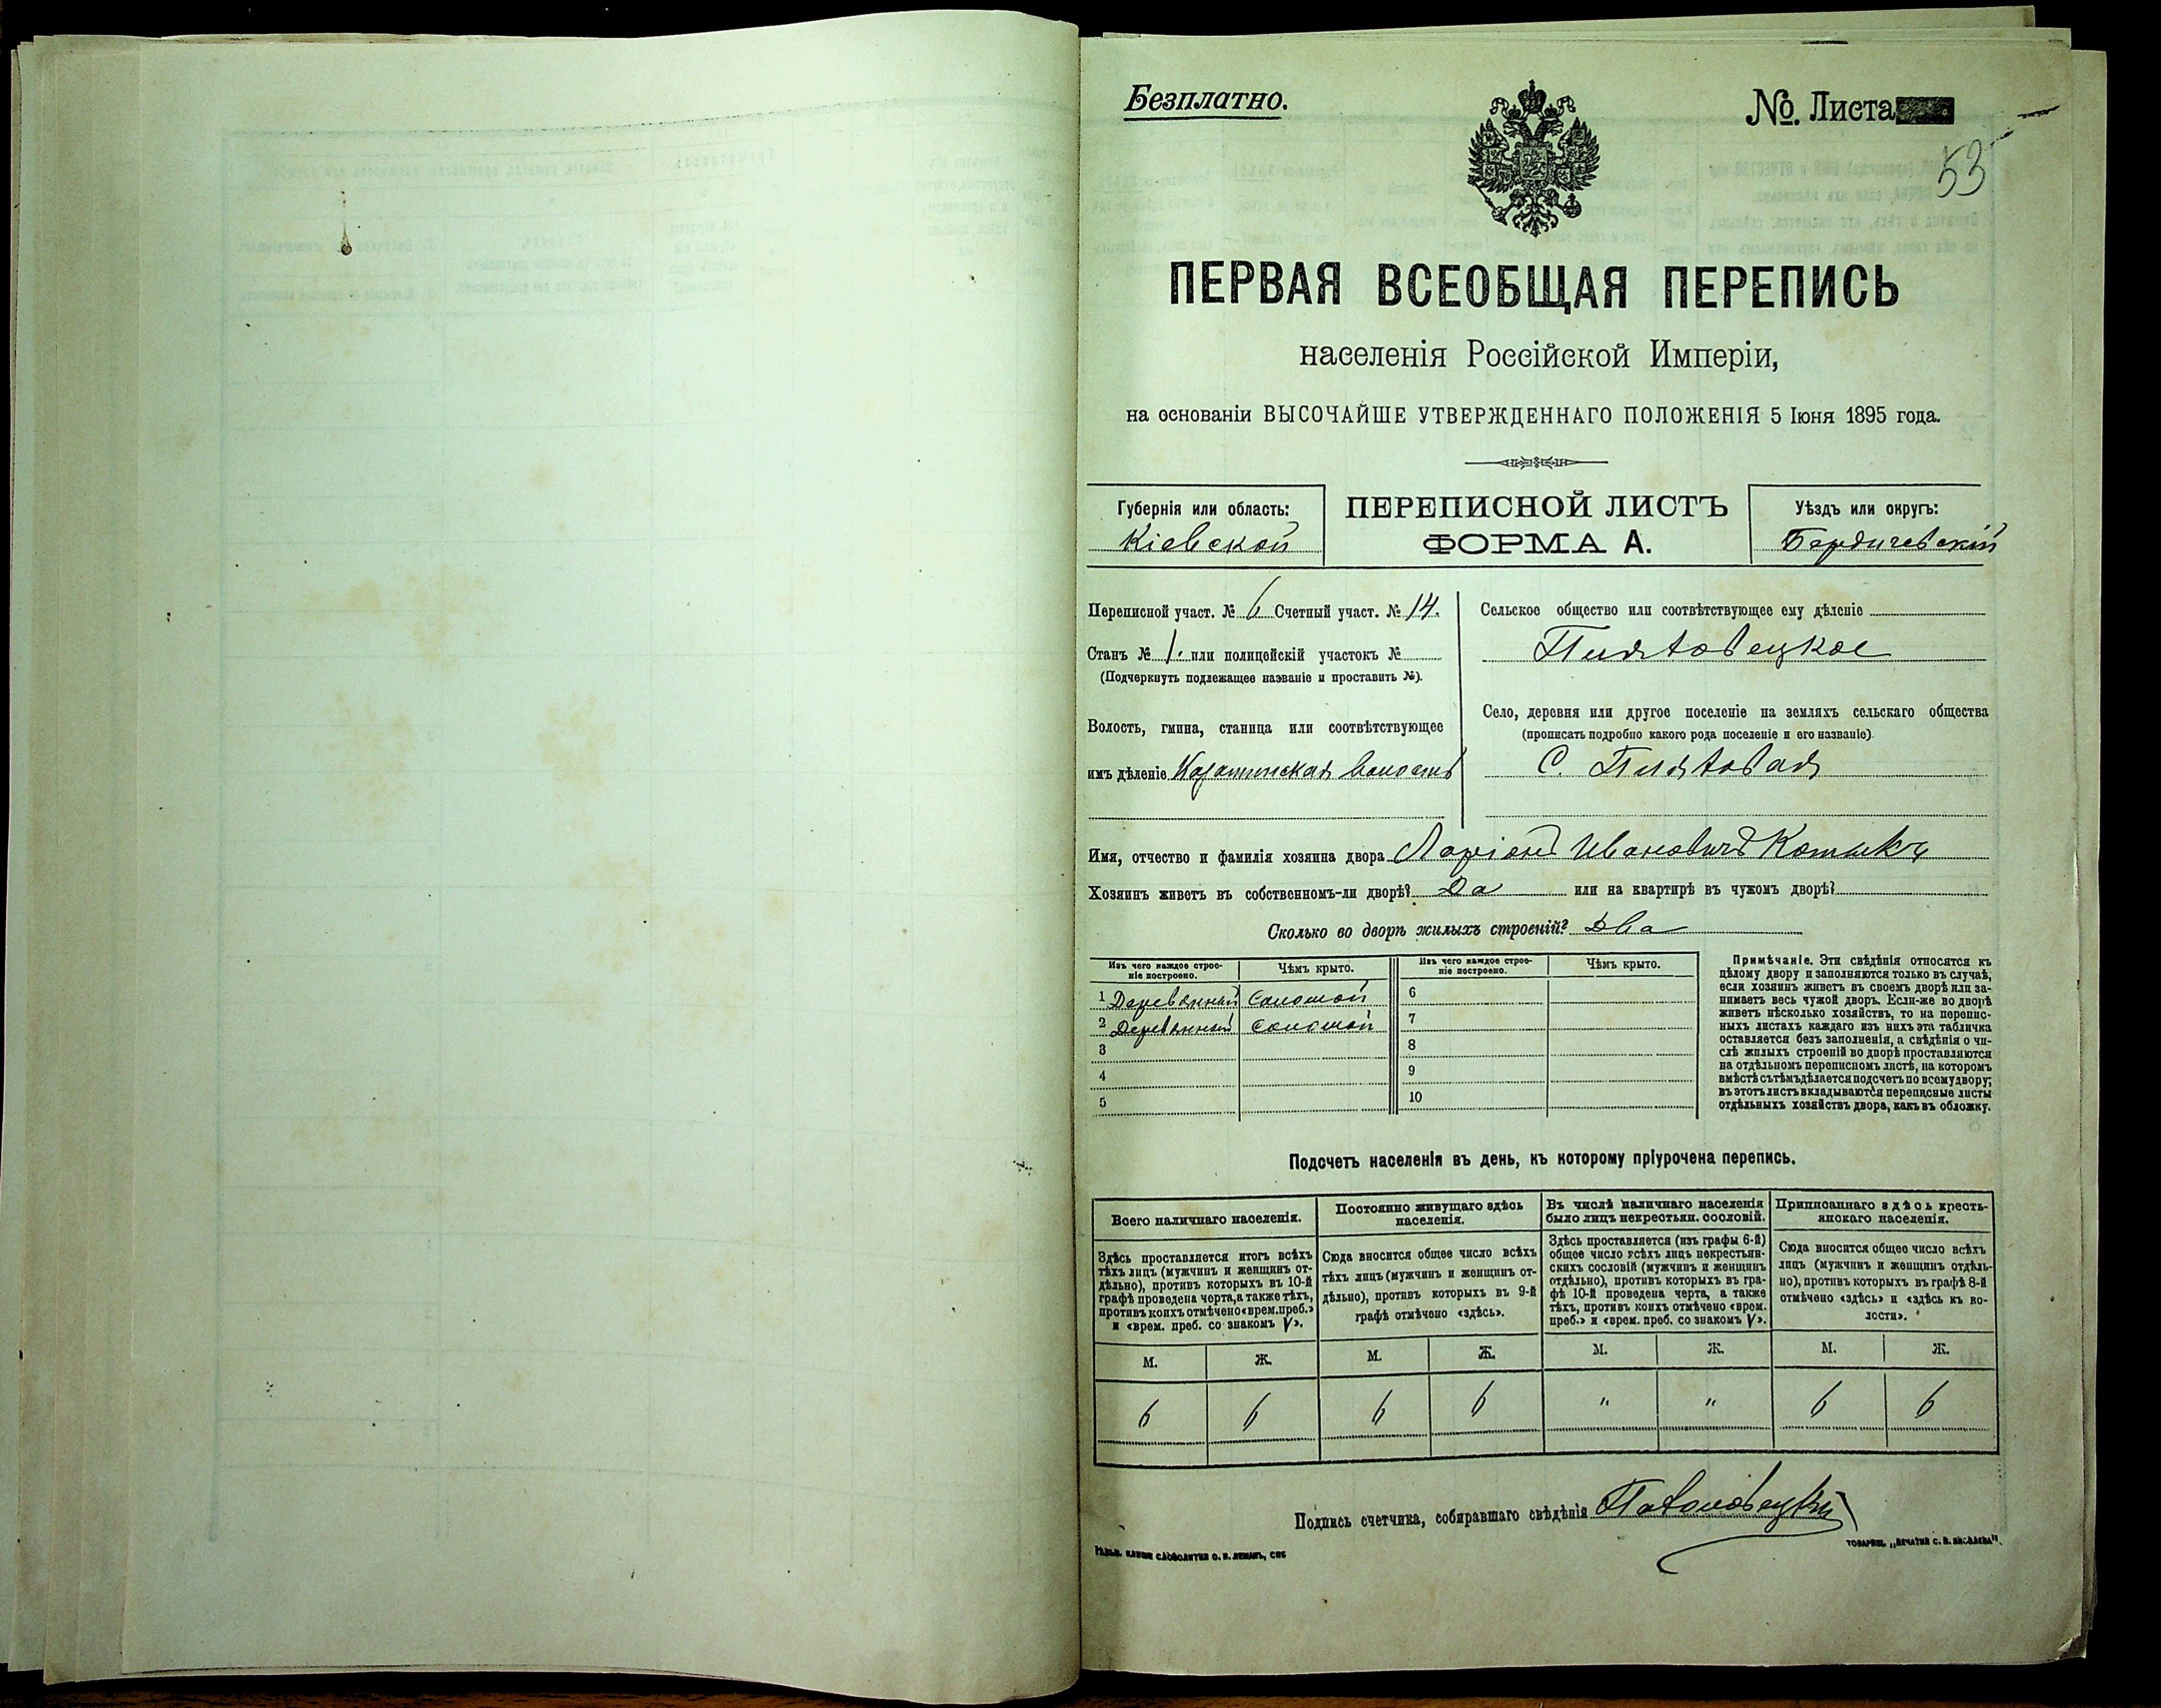 Безплатно.
№. Листа
53
ПЕРВАЯ ВСЕОБЩАЯ ПЕРЕПИСЬ
населенія Россійской Имперіи,
на основаніи ВЫСОЧАЙШЕ УТВЕРЖДЕННАГО ПОЛОЖЕНІЯ 5 Іюня 1895 года.
Губернія или область:
Кіевской
ПЕРЕПИСНОЙ ЛИСТЪ
ФОРМА А.
Уѣздъ или округъ:
Бердичевскій
Переписной участ. № 6 Счетный участ. № 14.
Станъ № 1. или полицейскій участокъ №
(Подчеркнуть подлежащее названіе и проставить №).
Волость, гмина, станица или соотвѣтствующее
имъ дѣленіе Казатинская волость
Сельское общество или соотвѣтствующее ему дѣленіе
Пиятовецкое
Село, деревня или другое поселеніе на земляхъ сельскаго общества
(прописать подробно какого рода поселеніе и его названіе).
С. Пиятовая
Имя, отчество и фамилія хозяина двора Ларіонъ Ивановичъ
Хозяинъ живетъ въ собственномъ-ли дворѣ? Да или на квартирѣ въ чужомъ дворѣ?
Сколько во дворѣ жилыхъ строеній? Два
Изъ чего каждое строеніе построено. Чѣмъ крыто. Изъ чего каждое строеніе построено. Чѣмъ крыто.
1 Деревянный Соломой 6
2 Деревянный Соломой 7
3 8
4 9
5 10
Примѣчаніе. Эти свѣдѣнія относятся къ
цѣлому двору и заполняются только въ случаѣ,
если хозяинъ живетъ въ своемъ дворѣ или за-
нимаетъ весь чужой дворъ. Если-же во дворѣ
живетъ нѣсколько хозяйствъ, то на перепис-
ныхъ листахъ каждаго изъ нихъ эта табличка
оставляется безъ заполненія, а свѣдѣнія о чи-
слѣ жилыхъ строеній во дворѣ проставляются
на отдѣльномъ переписномъ листѣ, на которомъ
вмѣстѣ съ тѣмъ дѣлается подсчетъ по всему двору;
въ этотъ листъ вкладываются переписные листы
отдѣльныхъ хозяйствъ двора, какъ въ обложку.
Подсчетъ населенія въ день, къ которому пріурочена перепись.
Всего наличнаго населенія.
Здѣсь проставляется итогъ всѣхъ
тѣхъ лицъ (мужчинъ и женщинъ от-
дѣльно), противъ которыхъ въ 10-й
графѣ проведена черта, а также тѣхъ,
противъ коихъ отмѣчено «врем. преб.»
и «врем. преб. со знакомъ V».
Постоянно живущаго здѣсь
населенія.
Сюда вносится общее число всѣхъ
тѣхъ лицъ (мужчинъ и женщинъ от-
дѣльно), противъ которыхъ въ 9-й
графѣ отмѣчено «здѣсь».
Въ числѣ наличнаго населенія
было лицъ некрестьян. сословій.
Здѣсь проставляется (изъ графы 6-й)
общее число всѣхъ лицъ некрестьян-
скихъ сословій (мужчинъ и женщинъ
отдѣльно), противъ которыхъ въ гра-
фѣ 10-й проведена черта, а также
тѣхъ, противъ коихъ отмѣчено «врем.
преб.» и «врем. преб. со знакомъ V».
Приписаннаго здѣсь кресть-
янскаго населенія.
Сюда вносится общее число всѣхъ
лицъ (мужчинъ и женщинъ отдѣль-
но), противъ которыхъ въ графѣ 8-й
отмѣчено «здѣсь» и «здѣсь къ во-
лости».
М. Ж. М. Ж. М. Ж. М. Ж.
6 6 6 6 " " 6 6
Подпись счетчика, собиравшаго свѣдѣнія
СЛОВОЛИТНИ О. И. ЛЕМАНЪ, СПБ
ТОВАРИЩ. „ПЕЧАТНЯ С. П. ЯКОВЛЕВА".